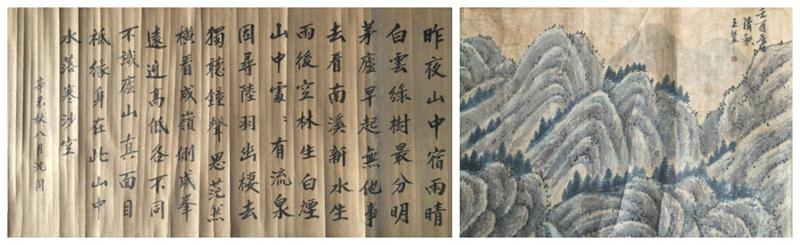 昨夜山中宿雨晴
白雲綠樹最分明
茅廬早起無他事
去看南溪新水生
雨後空林生白煙
山中處〻有流泉
因尋陸羽出棲去
獨聽鐘聲思茫然
橫看成嶺側成峯
遠近高低各不同
不識廬山真面目
祗緣身在此山中
水落寒沙空
辛未秋八月沈周
清秋
王